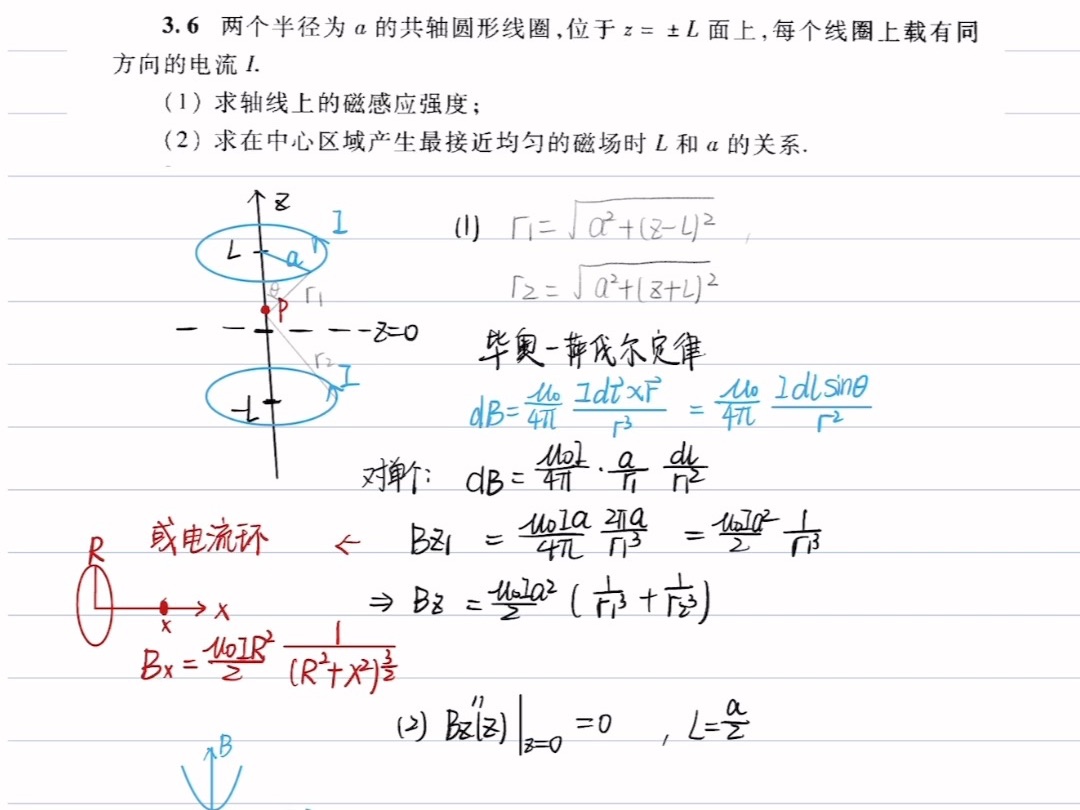 3.6 两个半径为 a 的共轴圆形线圈,位于 z = ±L 面上,每个线圈上载有同
方向的电流 I.
(1) 求轴线上的磁感应强度;
(2) 求在中心区域产生最接近均匀的磁场时 L 和 a 的关系.
z
I
L
a
θ
r₁
P
z=0
r₂
I
-L
(1) r₁=√(a²+(z-L)²)
r₂=√(a²+(z+L)²)
毕奥-萨伐尔定律
dB=μ₀/4π Idl⃗×r⃗/r³ = μ₀/4π Idlsinθ/r²
对单个: dB=μ₀I/4π · a/r₁ dl/r₁²
或电流环 ← Bz₁ = μ₀Ia/4π 2πa/r₁³ = μ₀Ia²/2 1/r₁³
R
x
x
⇒ Bz = μ₀Ia²/2 (1/r₁³ + 1/r₂³)
Bx = μ₀IR²/2 1/(R²+x²)^(3/2)
(2) Bz''(z)|z=0 =0 , L=a/2
B